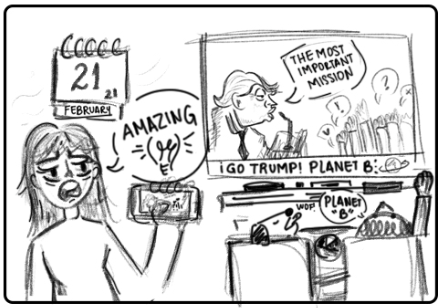 21
21
FEBRUARY
AMAZING
THE MOST
IMPORTANT
MISSION
? ?
GO TRUMP! PLANET B:
WOF!
PLANET
"B"